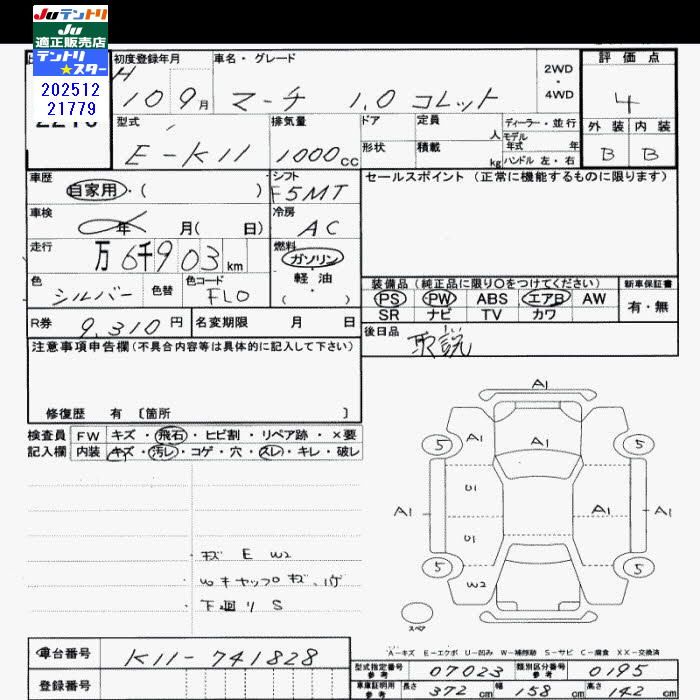 Juテントリ
Ju
適正販売店
テントリ
★スター
202512
21779
初度登録年月
車名・グレード
H 10 9月
マーチ 1.0 コレット
2WD
・
4WD
評価点
4
外装 内装
B B
型式
E-K11
排気量
1000cc
ドア
形状
定員 人
積載 kg
ディーラー・並行
モデル
年式 年
ハンドル 左・右
車歴
自家用・( )
シフト
F5MT
セールスポイント (正常に機能するものに限ります)
車検
年 月( 日)
冷房
AC
走行
万 6千903 km
燃料
ガソリン
軽・油
( )
色
シルバー
色替
色コード
FL0
装備品 (純正品に限り○をつけてください)
新車保証書
PS PW ABS エアB AW
SR ナビ TV カワ
有・無
R券
9,310円
名変期限 月 日
後日品
取説
注意事項申告欄 (不具合内容等は具体的に記入して下さい)
修復歴 有 〔箇所 〕
検査員
記入欄
FW キズ・飛石・ヒビ割・リペア跡・×要
内装 キズ・汚レ・コゲ・穴・スレ・キレ・破レ
・キズ E W2
・Wキャップキズ、ハゲ
・下廻り S
A1
A1
A1
5
5
U1
A1
A1
A1
U1
5
5
W2
スペア
A-キズ E-エクボ U-凹み W-補修跡 S-サビ C-腐食 XX-交換済
車台番号
K11-741828
登録番号
型式指定番号
参考
07023
類別区分番号
参考
0195
車庫証明用
参考
長さ 372 cm 幅 158 cm 高さ 142 cm